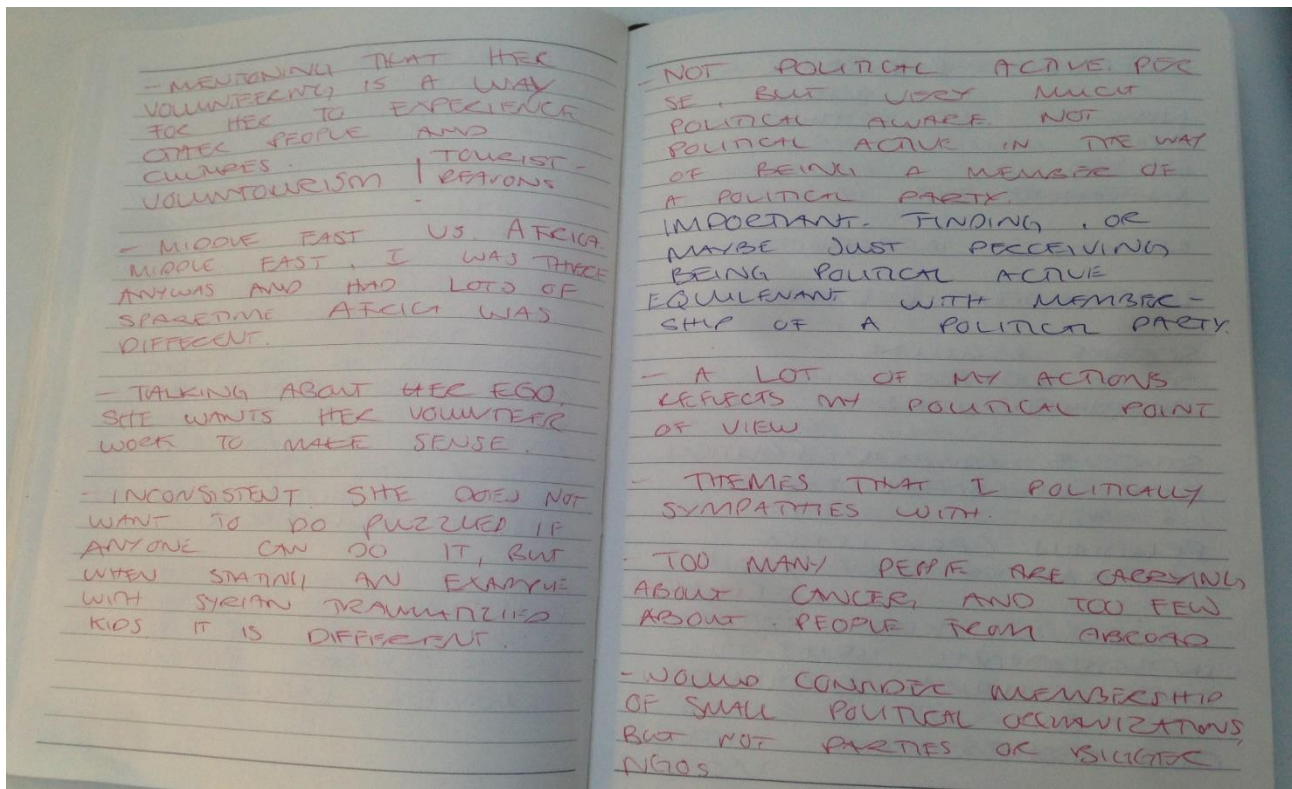 - MENTONING THAT HER
VOLUNTEERING IS A WAY
FOR HER TO EXPERIENCE
OTHER PEOPLE AND
CULTURES.
VOLUNTOURISM | TOURIST-
REASONS
- MIDDLE EAST VS AFRICA.
MIDDLE EAST, I WAS THERE
ANYWAS AND HAD LOTS OF
SPARETIME AFRICA WAS
DIFFERENT.
- TALKING ABOUT HER EGO.
SHE WANTS HER VOLUNTEER
WORK TO MAKE SENSE.
- INCONSISTENT. SHE DOES NOT
WANT TO DO PUZZLED IF
ANYONE CAN DO IT, BUT
WHEN STATING AN EXAMPLE
WITH SYRIAN TRAUMATIZED
KIDS IT IS DIFFERENT.
- NOT POLITICAL ACTIVE PER
SE, BUT VERY MUCH
POLITICAL AWARE. NOT
POLITICAL ACTIVE IN THE WAY
OF BEING A MEMBER OF
A POLITICAL PARTY.
IMPORTANT. FINDING, OR
MAYBE JUST PERCEIVING
BEING POLITICAL ACTIVE
EQUILENANT WITH MEMBER-
SHIP OF A POLITICAL PARTY.
- A LOT OF MY ACTIONS
REFLECTS MY POLITICAL POINT
OF VIEW
- THEMES THAT I POLITICALLY
SYMPATHIES WITH.
- TOO MANY PEOPLE ARE CARRYING
ABOUT CANCER, AND TOO FEW
ABOUT PEOPLE FROM ABROAD
- WOULD CONSIDER MEMBERSHIP
OF SMALL POLITICAL ORGANIZATIONS,
BUT NOT PARTIES OR BIGGER
NGOS